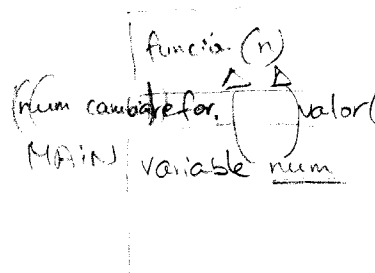 función (n)
(num cambiar for. valor(
MAIN variable num